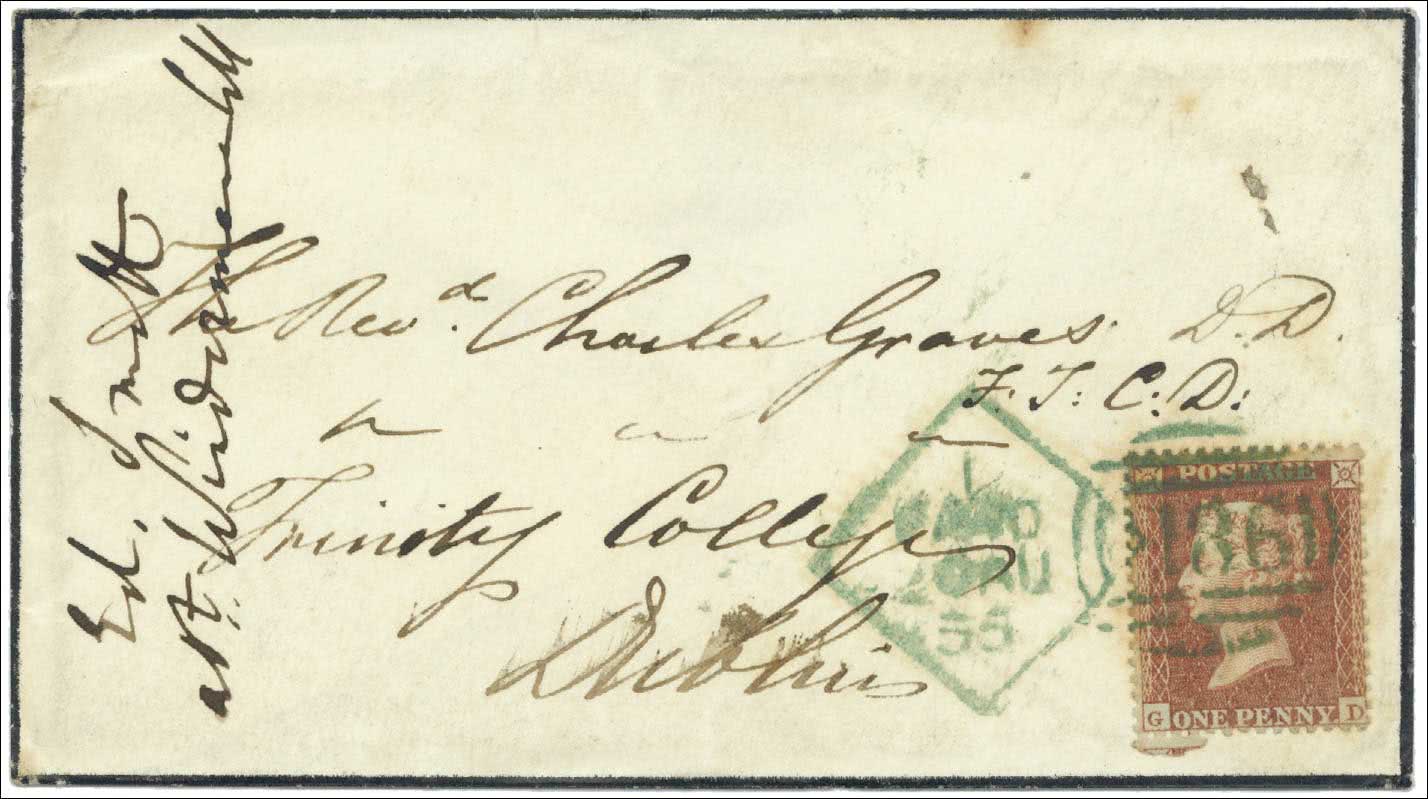 The Revd. Charles Graves D.D.
F.T.C.D:
Trinity College
Dublin
Ed. Smith
at
POSTAGE
G ONE PENNY D
186
55